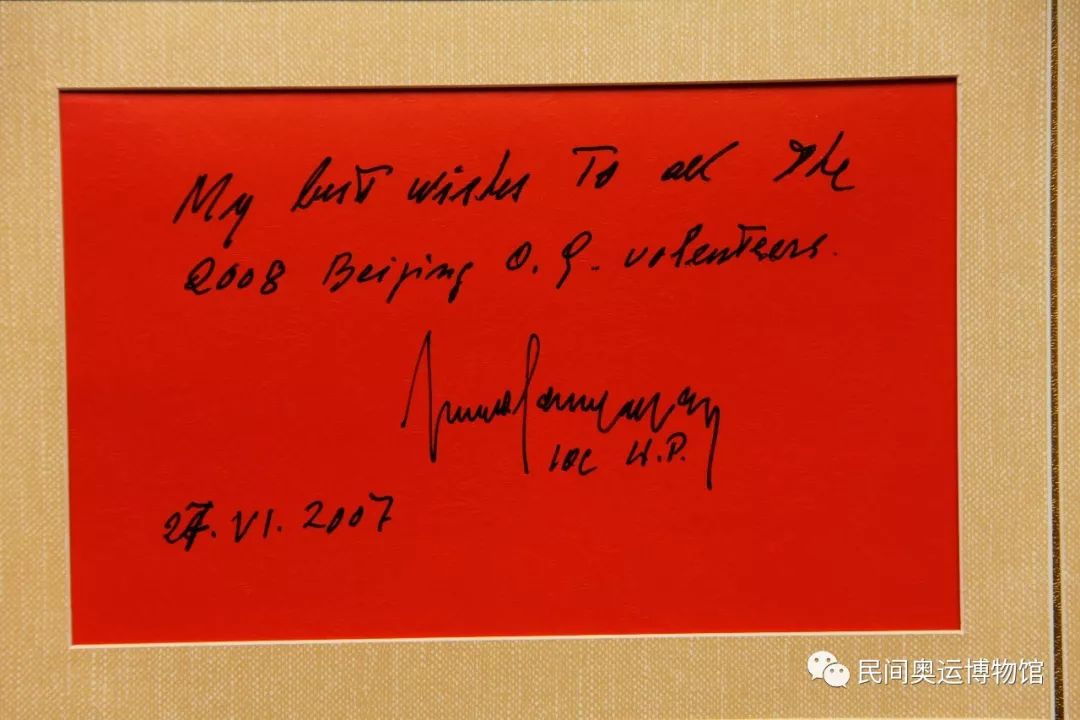 My best wishes To all The
2008 Beijing O.G. volunteers.
IOC H.P.
27.VI.2007
民间奥运博物馆